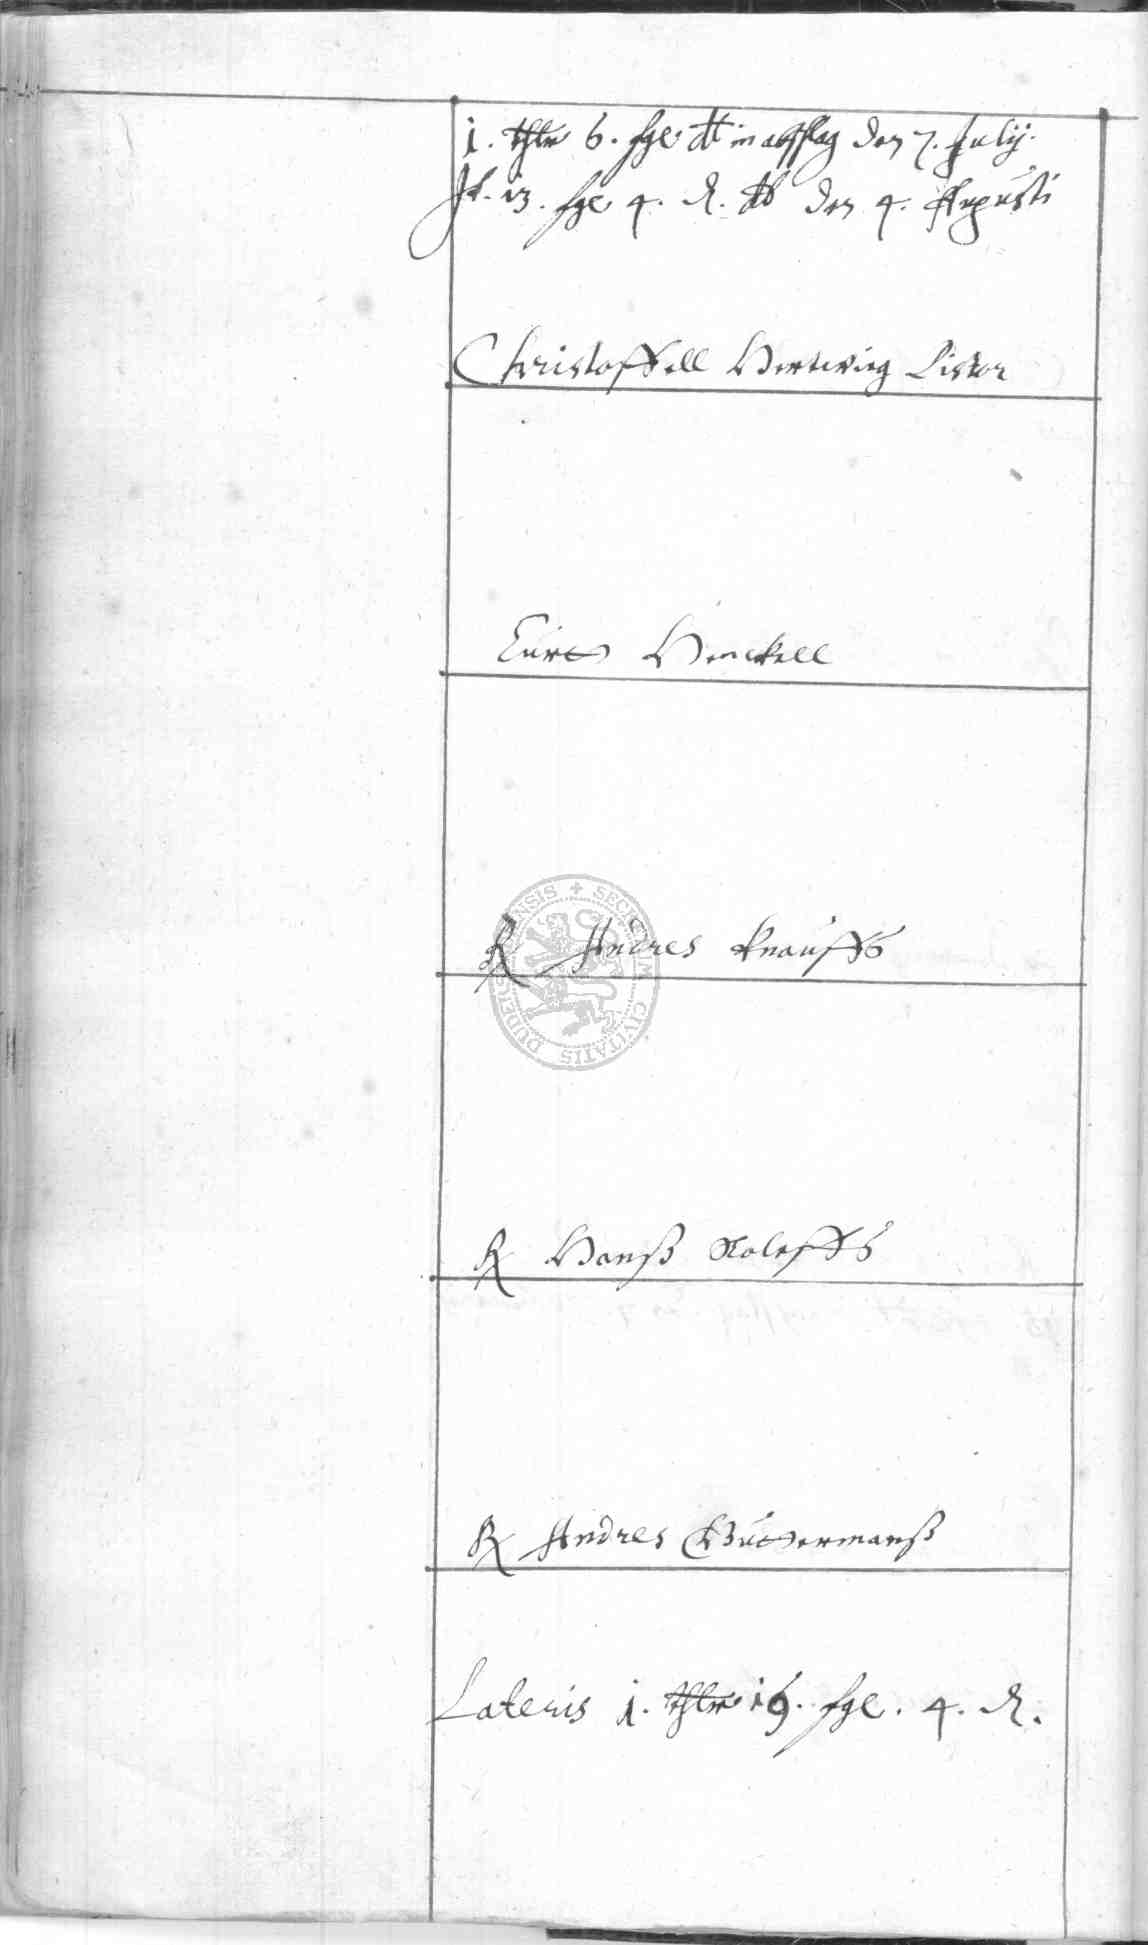 1. thlr 6. sgl dt in abschlag den 7. Julij.
It. 13. sgl 4. d. dt den 4. Augusti
Christoffell Hertwig Pistor
Curtt Henckell
R Andres Knauffs
R Hanß Roleffs
R Andres Güttermanß
Lateris 1. thlr 19. sgl. 4. d.
SECRETUM CIVITATIS DUDERS ENSIS